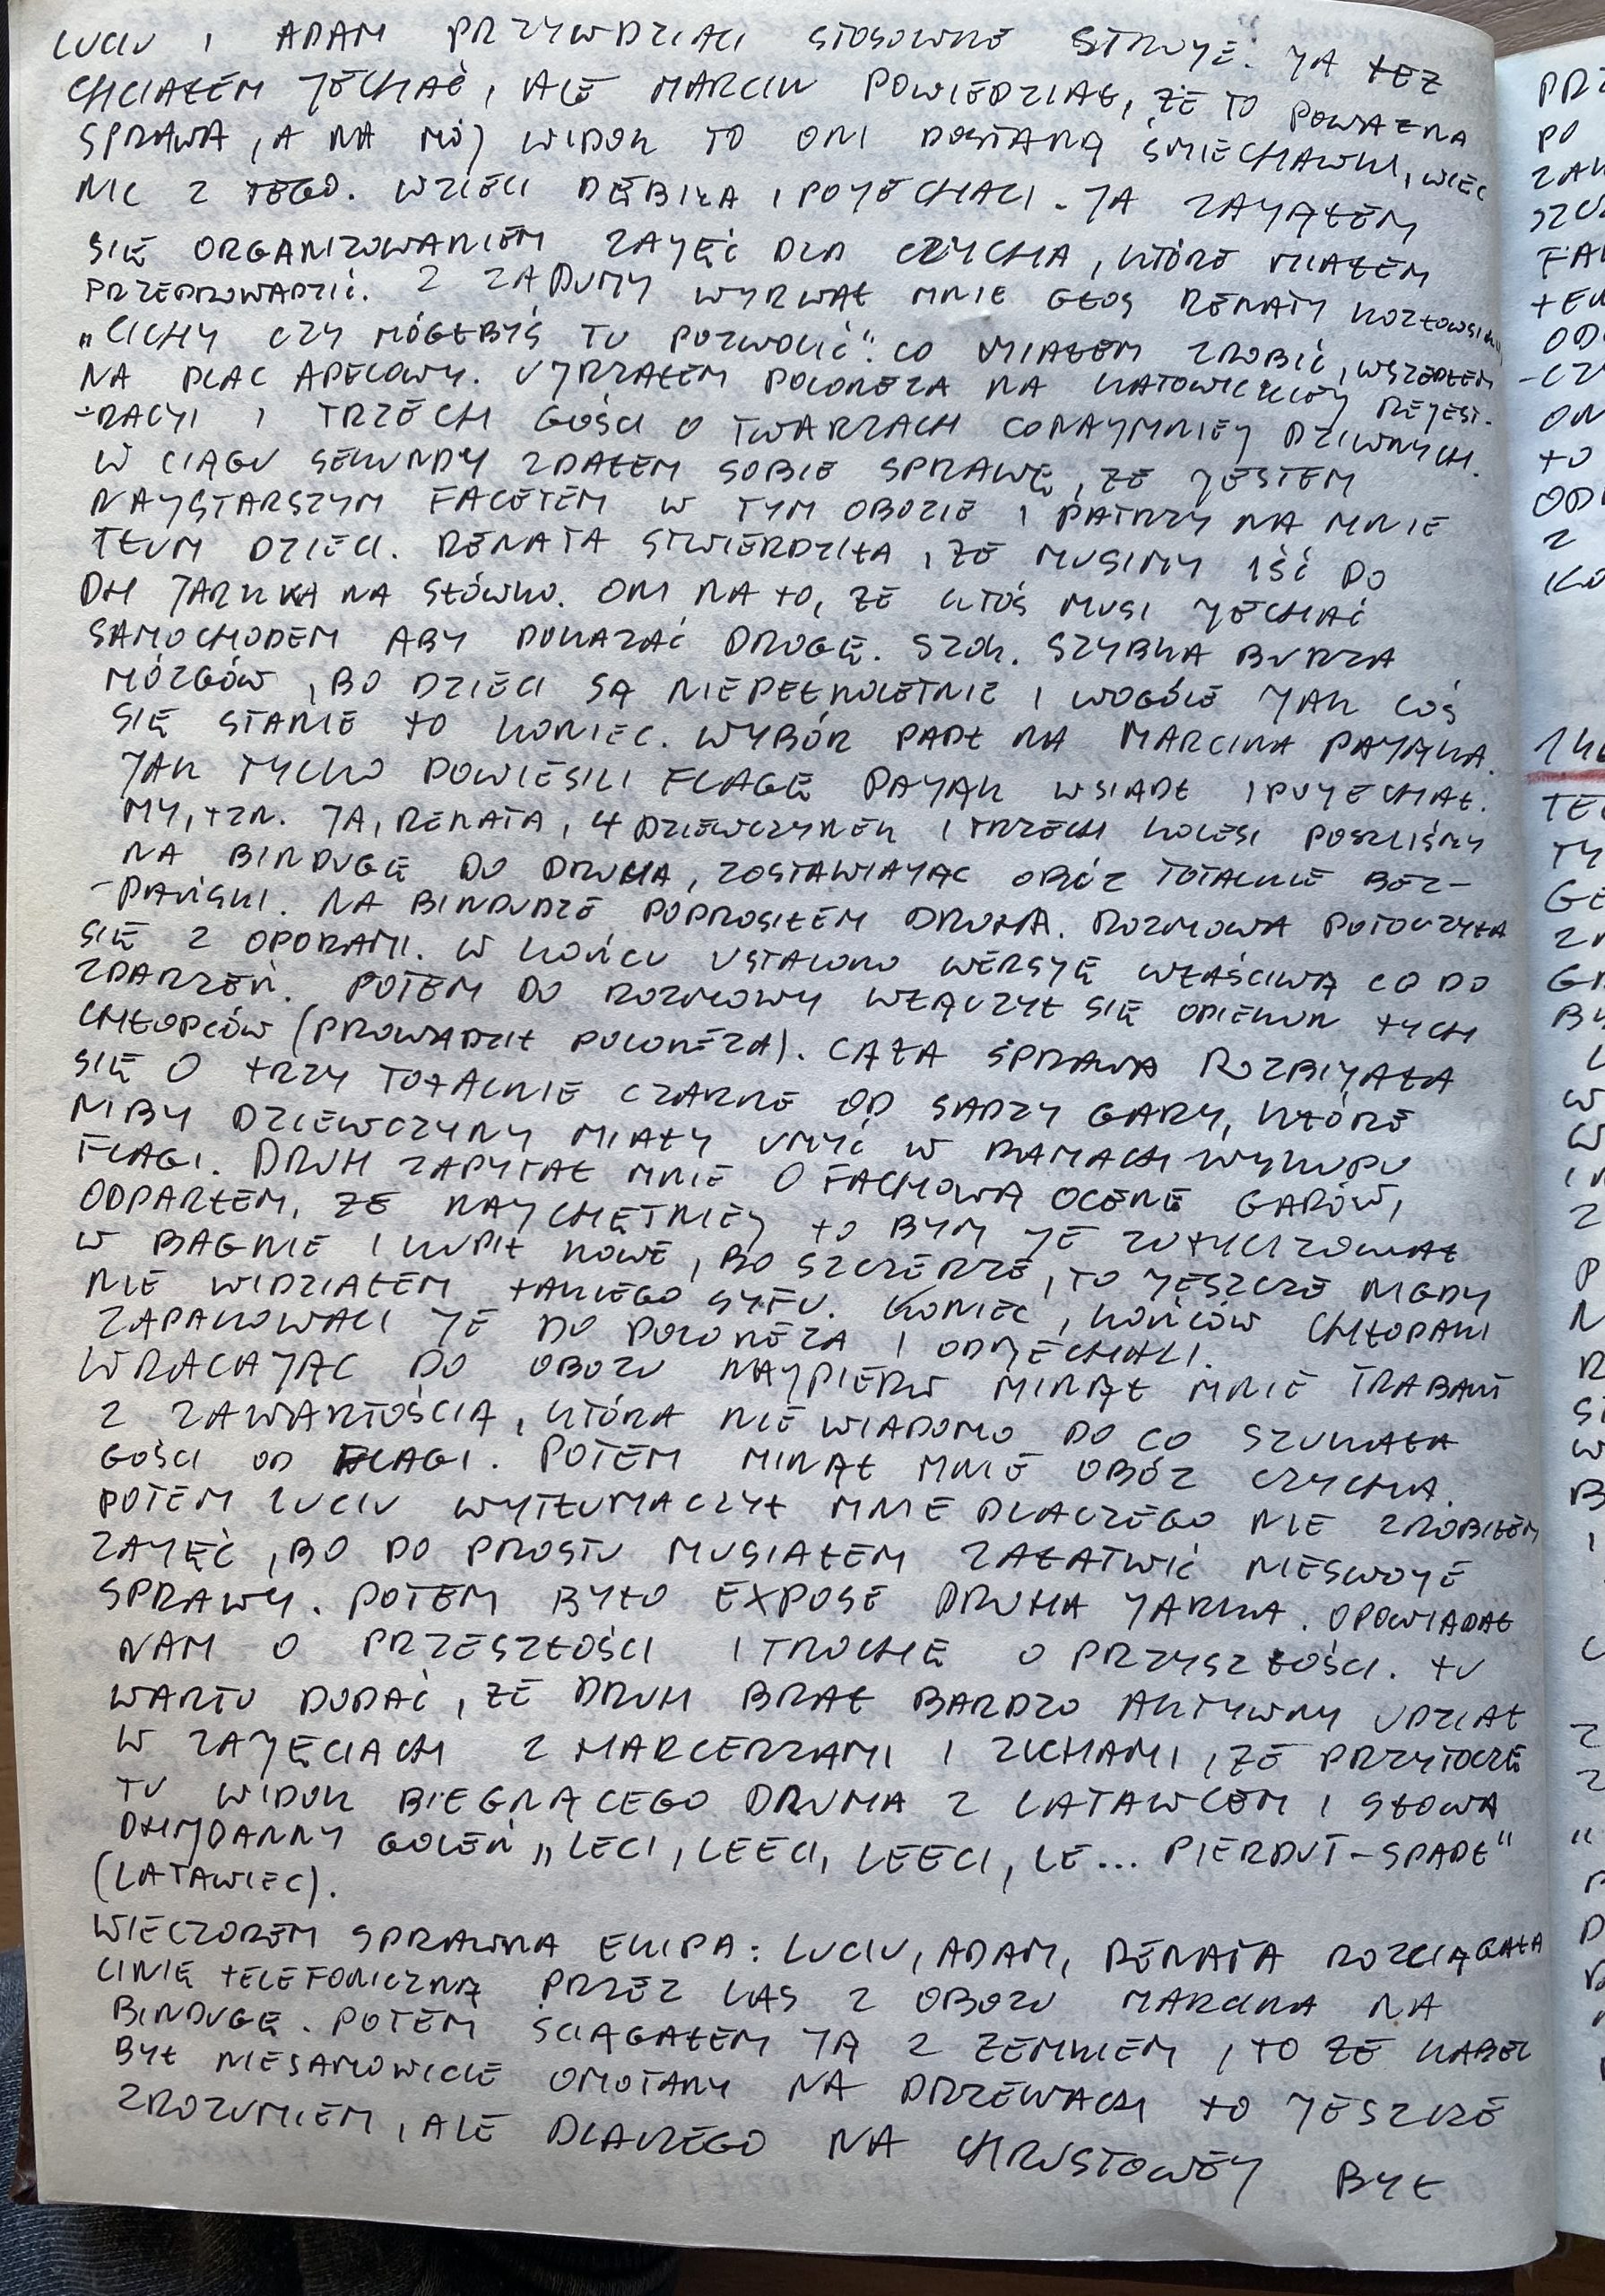 LUCIU I ADAM PRZYWDZIALI STOSOWNE STROJE. JA TEŻ
CHCIAŁEM JECHAĆ, ALE MARCIN POWIEDZIAŁ, ŻE TO POWAŻNA
SPRAWA, A NA MÓJ WIDOK TO ONI DOSTANĄ ŚMIECHAWKI, WIĘC
NIC Z TEGO. WZIELI DĘBILA I POJECHALI. JA ZAJĄŁEM
SIĘ ORGANIZOWANIEM ZAJĘĆ DLA CZYCHA, KTÓRE MIAŁEM
PRZEPROWADZIĆ. Z ZADUMY WYRWAŁ MNIE GŁOS RENATY KOZŁOWSKIEJ
„CICHY CZY MÓGŁBYŚ TU POZWOLIĆ". CO MIAŁEM ZROBIĆ, WSZEDŁEM
NA PLAC APELOWY. UJRZAŁEM POLONEZA NA KATOWICKIEJ REJEST-
-RACJI I TRZECH GOŚCI O TWARZACH CONAJMNIEJ DZIWNYCH.
W CIĄGU SEKUNDY ZDAŁEM SOBIE SPRAWĘ, ŻE JESTEM
NAJSTARSZYM FACETEM W TYM OBOZIE I PATRZY NA MNIE
TŁUM DZIECI. RENATA STWIERDZIŁA, ŻE MUSIMY IŚĆ DO
DH JARKKA NA SŁÓWKO. ONI NA TO, ŻE KTOŚ MUSI JECHAĆ
SAMOCHODEM ABY POKAZAĆ DROGĘ. SZOK. SZYBKA BURZA
MÓZGÓW, BO DZIECI SĄ NIEPEŁNOLETNIE I WOGÓLE JAK COŚ
SIĘ STANIE TO KONIEC. WYBÓR PADŁ NA MARCINA PAJĄKA.
JAK TYLKO POWIESILI FLAGĘ PAJĄK WSIADŁ I POJECHAŁ.
MY, TZN. JA, RENATA, 4 DZIEWCZYNEK I TRZECH KOLESI POSZLIŚMY
NA BINDUGĘ DO DRUHA, ZOSTAWIAJĄC OBÓZ TOTALNIE BEZ-
-PAŃSKI. NA BINDUDZE POPROSIŁEM DRUHA. ROZMOWA POTOCZYŁA
SIĘ Z OPORAMI. W KOŃCU USTALONO WERSJĘ WŁAŚCIWĄ CO DO
ZDARZEŃ. POTEM DO ROZMOWY WŁĄCZYŁ SIĘ OPIEKUN TYCH
CHŁOPCÓW (PROWADZIŁ POLONEZA). CAŁA SPRAWA ROZBIJAŁA
SIĘ O TRZY TOTALNIE CZARNE OD SADZY GARY, KTÓRE
NIBY DZIEWCZYNY MIAŁY UMYĆ W RAMACH WYKUPU
FLAGI. DRUH ZAPYTAŁ MNIE O FACHOWĄ OCENĘ GARÓW,
ODPARŁEM, ŻE NAJCHĘTNIEJ TO BYM JE ZUTYLIZOWAŁ
W BAGNIE I KUPIŁ NOWE, BO SZCZERZE, TO JESZCZE NIGDY
NIE WIDZIAŁEM TAKIEGO SYFU. KONIEC, KOŃCÓW CHŁOPAKI
ZAPAKOWALI JE DO POLONEZA I ODJECHALI.
WRACAJĄC DO OBOZU NAJPIERW MINĄŁ MNIE TRABANT
Z ZAWARTOŚCIĄ, KTÓRA NIE WIADOMO PO CO SZUKAŁA
GOŚCI OD FLAGI. POTEM MINĄŁ MNIE OBÓZ CZYCHA.
POTEM LUCIU WYTŁUMACZYŁ MNIE DLACZEGO NIE ZROBIŁEM
ZAJĘĆ, BO PO PROSTU MUSIAŁEM ZAŁATWIĆ NIESWOJE
SPRAWY. POTEM BYŁO EXPOSE DRUHA JARKA. OPOWIADAŁ
NAM O PRZESZŁOŚCI I TROCHĘ O PRZYSZŁOŚCI. TU
WARTO DODAĆ, ŻE DRUH BRAŁ BARDZO AKTYWNY UDZIAŁ
W ZAJĘCIACH Z HARCERZAMI I ZUCHAMI, ŻE PRZYTOCZĘ
TU WIDOK BIEGNĄCEGO DRUHA Z LATAWCEM I SŁOWA
GOLEŃ „LECI, LEECI, LEECI, LE... PIERDUT-SPADŁ"
(LATAWIEC).
WIECZOREM SPRAWNA EKIPA: LUCIU, ADAM, RENATA ROZCIĄGAŁA
LINIĘ TELEFONICZNĄ PRZEZ LAS Z OBOZU MARCINA NA
BINDUGĘ. POTEM ŚCIĄGAŁEM JĄ Z ZEMKIEM, TO ŻE KABEL
BYŁ NIESAMOWICIE OMOTANY NA DRZEWACH TO JESZCZE
ZROZUMIEM, ALE DLACZEGO NA CHRUSTOWEJ BYŁ